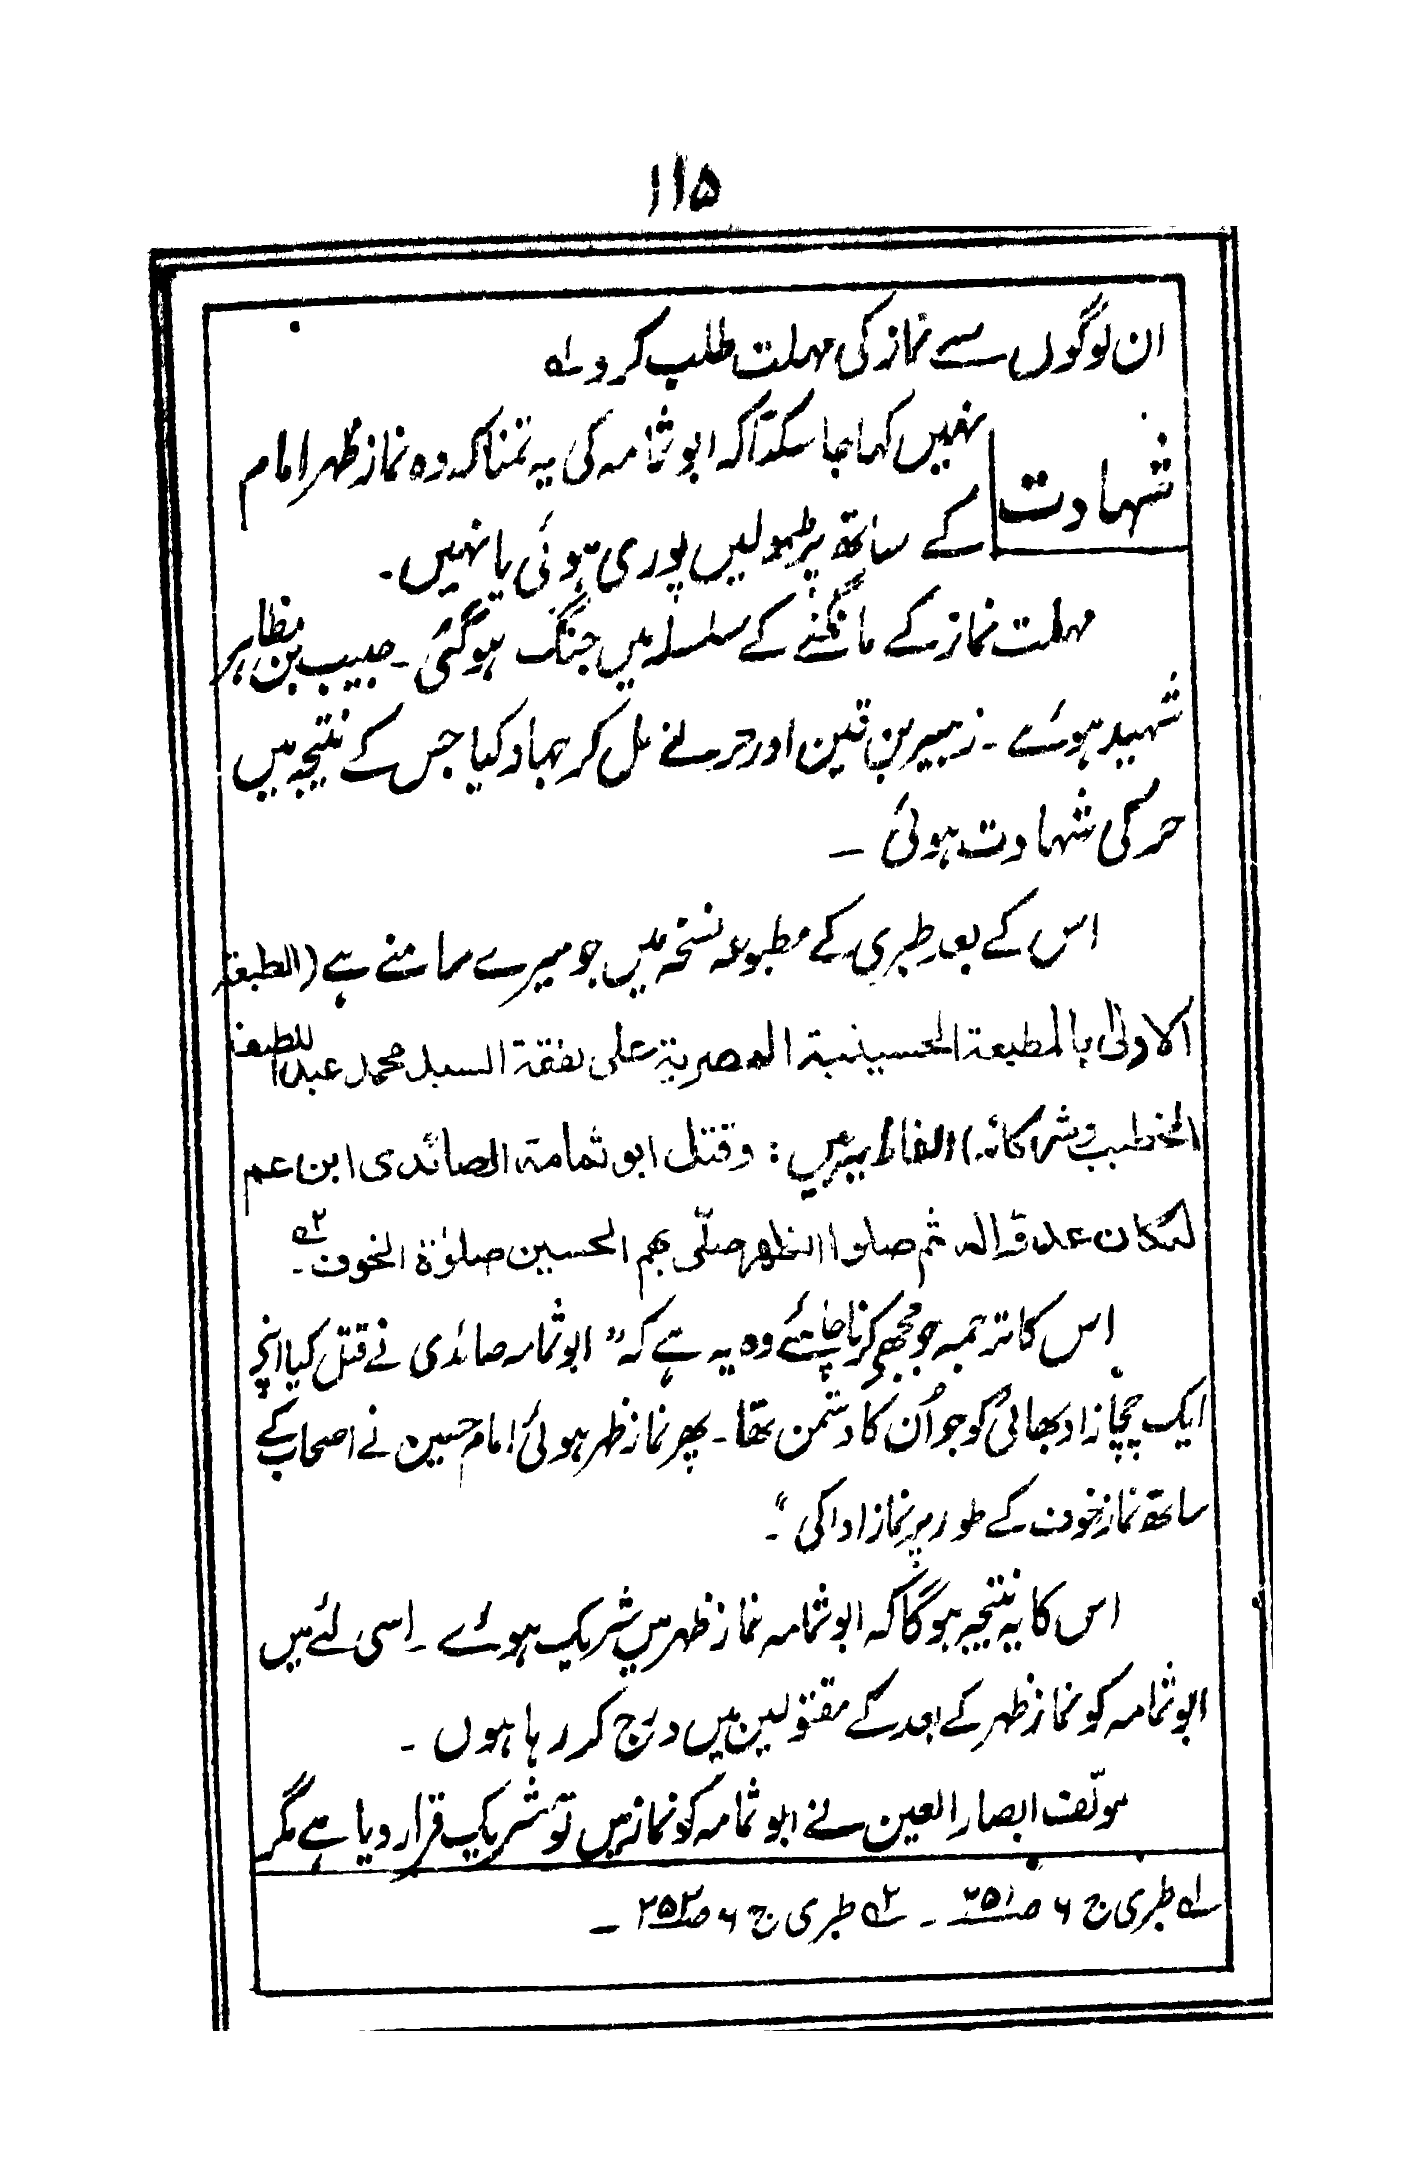 ۱۱۵
ان لوگوں سے نماز کی مہلت طلب کرو ۱؎
شہادت
نہیں کہا جا سکتا کہ ابو ثمامہ کی یہ تمنا کہ وہ نماز ظہر امام
کے ساتھ پڑھ لیں پوری ہوئی یا نہیں۔
مہلت نماز کے مانگنے کے سلسلہ میں جنگ ہوگئی۔ حبیب بن مظاہر
شہید ہوئے۔ زہیر بن قین اور حر نے مل کر جہاد کیا جس کے نتیجہ میں
حر کی شہادت ہوئی ۔
اس کے بعد طبری کے مطبوعہ نسخہ میں جو میرے سامنے ہے (الطبعۃ
الاولیٰ بالمطبعۃ الحسینیۃ المصریۃ علی نفقۃ السید محمد عبداللطیف
الخطیب وشرکائہ) الفاظ یہ ہیں: وقتل ابو ثمامۃ الصائدی ابن عم
لہ کان عدوًّا لہ ثم صلوا الظہر صلّی بھم الحسین صلوٰۃ الخوف۔ ۲؎
اس کا ترجمہ جو مجھے کرنا چاہئے وہ یہ ہے کہ "ابو ثمامہ صائدی نے قتل کیا اپنے
ایک چچا زاد بھائی کو جو اُن کا دشمن تھا۔ پھر نماز ظہر ہوئی امام حسین نے اصحاب کے
ساتھ نماز خوف کے طور پر نماز ادا کی"۔
اس کا یہ نتیجہ ہوگا کہ ابو ثمامہ نماز ظہر میں شریک ہوئے ۔ اسی لئے میں
ابو ثمامہ کو نماز ظہر کے بعد کے مقتولین میں درج کر رہا ہوں ۔
مولّف ابصار العین نے ابو ثمامہ کو نماز میں تو شریک قرار دیا ہے مگر
۱؎ طبری ج ۶ صـ۲۵۱ ۔ ۲؎ طبری ج ۶ صـ۲۵۲ ۔